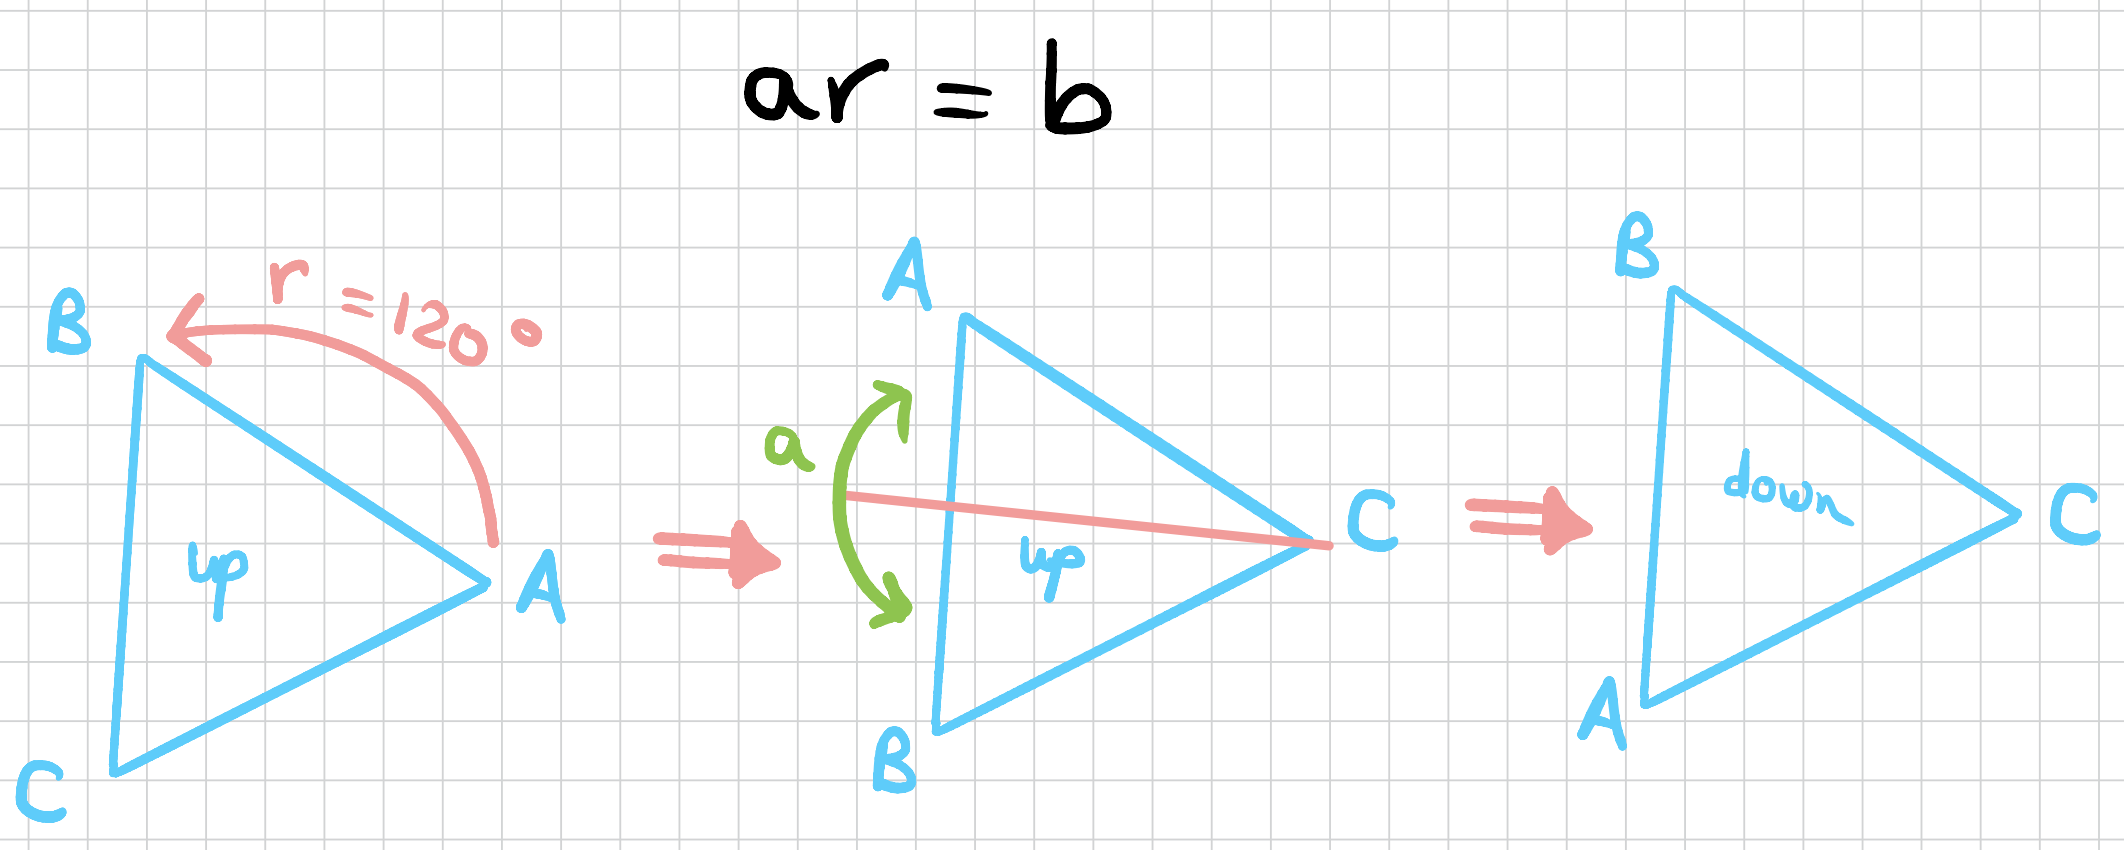 ar = b
r = 120°
B
up
A
C
A
a
up
C
B
B
down
C
A